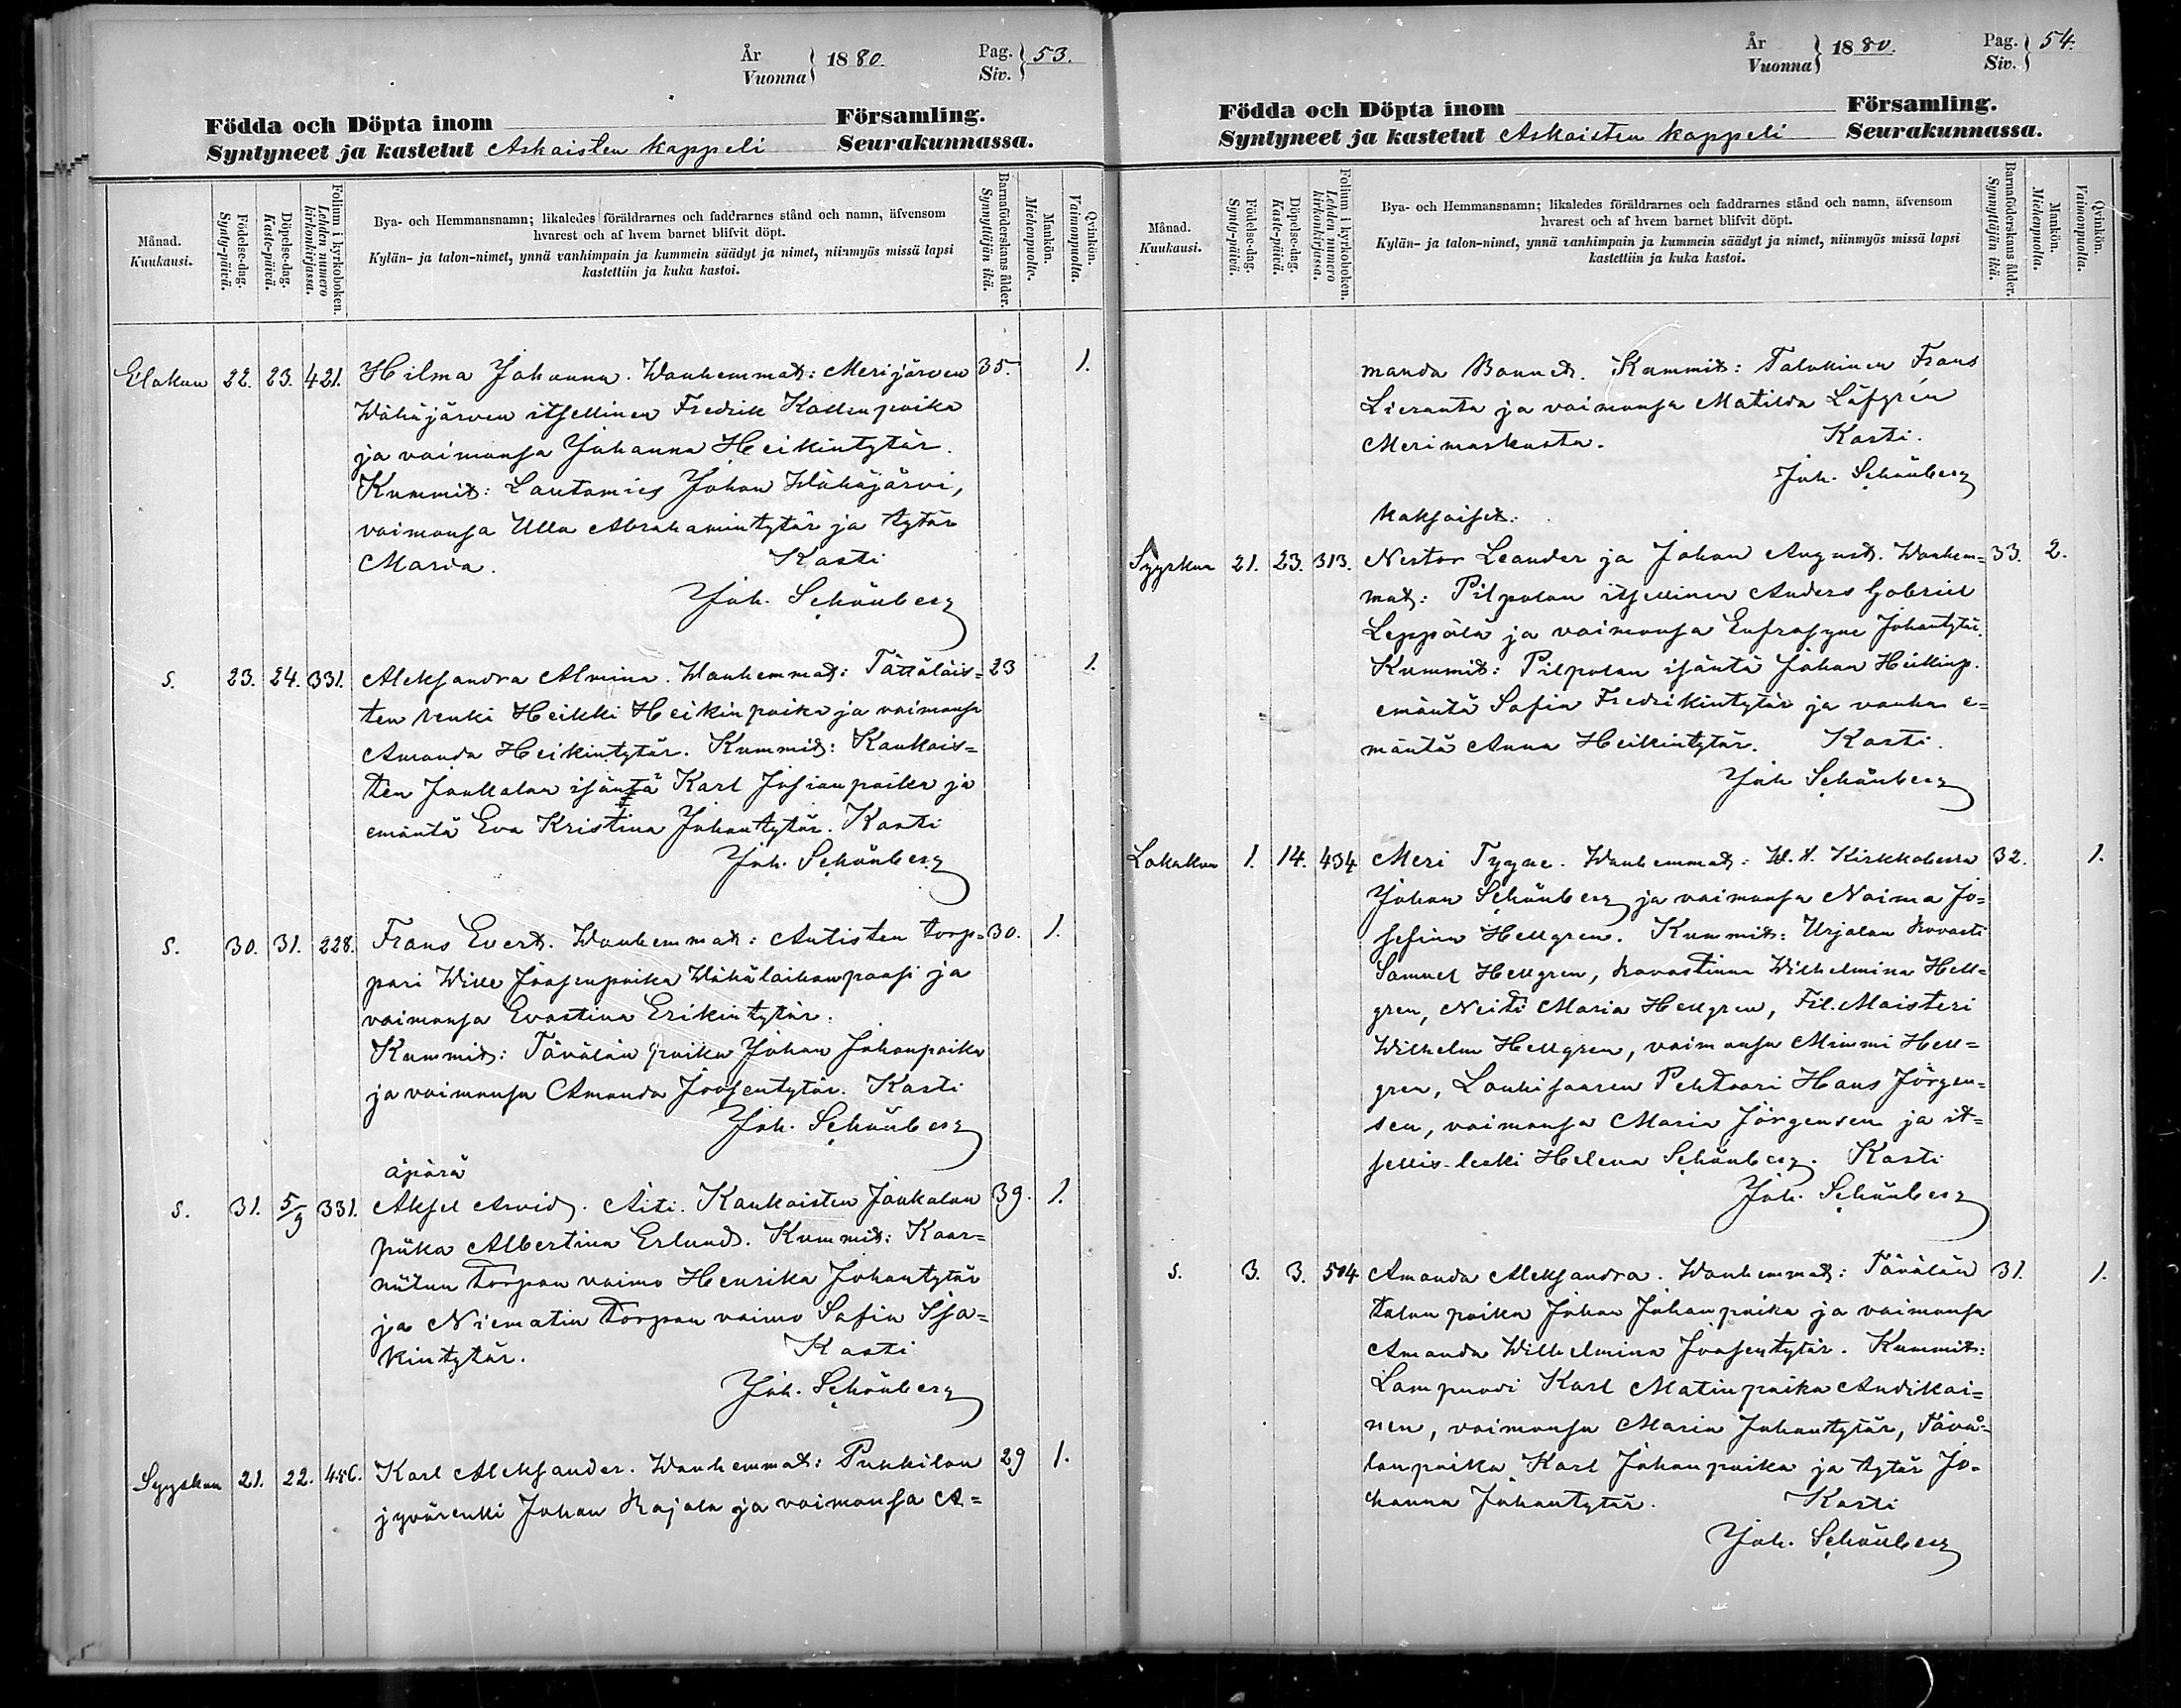 År
Vuonna } 1880.
Pag.
Siv. } 53.
Födda och Döpta inom Församling.
Syntyneet ja kastetut Askaisten kappeli Seurakunnassa.
Månad.
Kuukausi.
Födelse-dag.
Synty-päivä.
Döpelse-dag.
Kaste-päivä.
Folium i kyrkoboken.
Lehden numero
kirkonkirjassa.
Bya- och Hemmansnamn; likaledes föräldrarnes och faddrarnes stånd och namn, äfvensom
hvarest och af hvem barnet blifvit döpt.
Kylän- ja talon-nimet, ynnä vanhimpain ja kummein säädyt ja nimet, niinmyös missä lapsi
kastettiin ja kuka kastoi.
Barnaföderskans ålder.
Synnyttäjän ikä.
Mankön.
Miehenpuolia.
Qvinkön.
Vaimonpuolia.
Elokuu 22. 23. 421. Hilma Johanna. Wanhemmat: Merijärven 35. 1.
Wähäjärven itsellinen Fredrik Kallenpoika
ja vaimonsa Johanna Heikintytär.
Kummit: Lautamies Johan Wähäjärvi,
vaimonsa Ulla Abrahamintytär ja tytär
Maria. Kasti
Joh. Schönberg
S. 23. 24. 331. Aleksandra Almina. Wanhemmat: Tättäläis= 23 1.
ten renki Heikki Heikinpoika ja vaimonsa
Amanda Heikintytär. Kummit: Kaukais=
ten Jaakolan isäntä Karl Josianpoika ja
emäntä Eva Kristina Johantytär. Kasti
Joh. Schönberg
S. 30. 31. 228. Frans Evert. Wanhemmat: Autisten torp= 30. 1.
pari Wille Joosenpoika Wähälaihonpaasi ja
vaimonsa Evastina Erikintytär.
Kummit: Tävälän poika Johan Johanpoika
ja vaimonsa Amanda Joosentytär. Kasti
Joh. Schönberg
äpärä
S. 31. 5/9 331. Aksel Arvid. Äiti. Kaukaisten Jaakolan 39. 1.
piika Albertina Erlund. Kummit: Kaar=
niitun torpan vaimo Henrika Johantytär
ja Niemotin torpan vaimo Sofia Isa=
kintytär. Kasti
Joh. Schönberg
Syyskuu 21. 22. 486. Karl Aleksander. Wanhemmat: Pukkilan 29 1.
jyvärenki Johan Rajala ja vaimonsa A=
År
Vuonna } 1880.
Pag.
Siv. } 54.
Födda och Döpta inom Församling.
Syntyneet ja kastetut Askaisten kappeli Seurakunnassa.
Månad.
Kuukausi.
Födelse-dag.
Synty-päivä.
Döpelse-dag.
Kaste-päivä.
Folium i kyrkoboken.
Lehden numero
kirkonkirjassa.
Bya- och Hemmansnamn; likaledes föräldrarnes och faddrarnes stånd och namn, äfvensom
hvarest och af hvem barnet blifvit döpt.
Kylän- ja talon-nimet, ynnä vanhimpain ja kummein säädyt ja nimet, niinmyös missä lapsi
kastettiin ja kuka kastoi.
Barnaföderskans ålder.
Synnyttäjän ikä.
Mankön.
Miehenpuolia.
Qvinkön.
Vaimonpuolia.
manda Bonnet. Kummit: Talokinen Frans
Lieranta ja vaimonsa Matilda Löfgrén
Merimaskusta. Kasti.
Joh. Schönberg
Kaksoiset.
Syyskuu 21. 23. 313. Nestor Leander ja Johan August. Wanhem= 33. 2.
mat: Pilpolan itsellinen Anders Gabriel
Leppälä ja vaimonsa Eufrosyne Johantytär.
Kummit: Pilpolan isäntä Johan Heikinp.
emäntä Sofia Fredrikintytär ja vanha e=
mäntä Anna Heikintytär. Kasti.
Joh Schönberg
Lokakuu 1. 14. 434 Meri Tyyne. Wanhemmat: W. t. Kirkkoherra 32. 1.
Johan Schönberg ja vaimonsa Naima Jo=
sefina Hellgren. Kummit: Urjalan Rovasti
Samuel Hellgren, Rovastinna Wilhelmina Hell=
gren, Neiti Maria Hellgren, Fil. Maisteri
Wilhelm Hellgren, vaimonsa Mimmi Hell=
gren, Louhisaaren Pehtoori Hans Jörgen=
sen, vaimonsa Maria Jörgensen ja it=
sellis-leski Helena Schönberg. Kasti
Joh. Schönberg
S. 3. 3. 504 Amanda Aleksandra. Wanhemmat: Tävälän 31. 1.
talon poika Johan Johanpoika ja vaimonsa
Amanda Wilhelmina Joosentytär. Kummit:
Lampuodi Karl Matinpoika Andikai=
nen, vaimonsa Maria Johantytär, Tävä=
lan poika Karl Johanpoika ja tytär Jo=
hanna Johantytär. Kasti
Joh. Schönberg